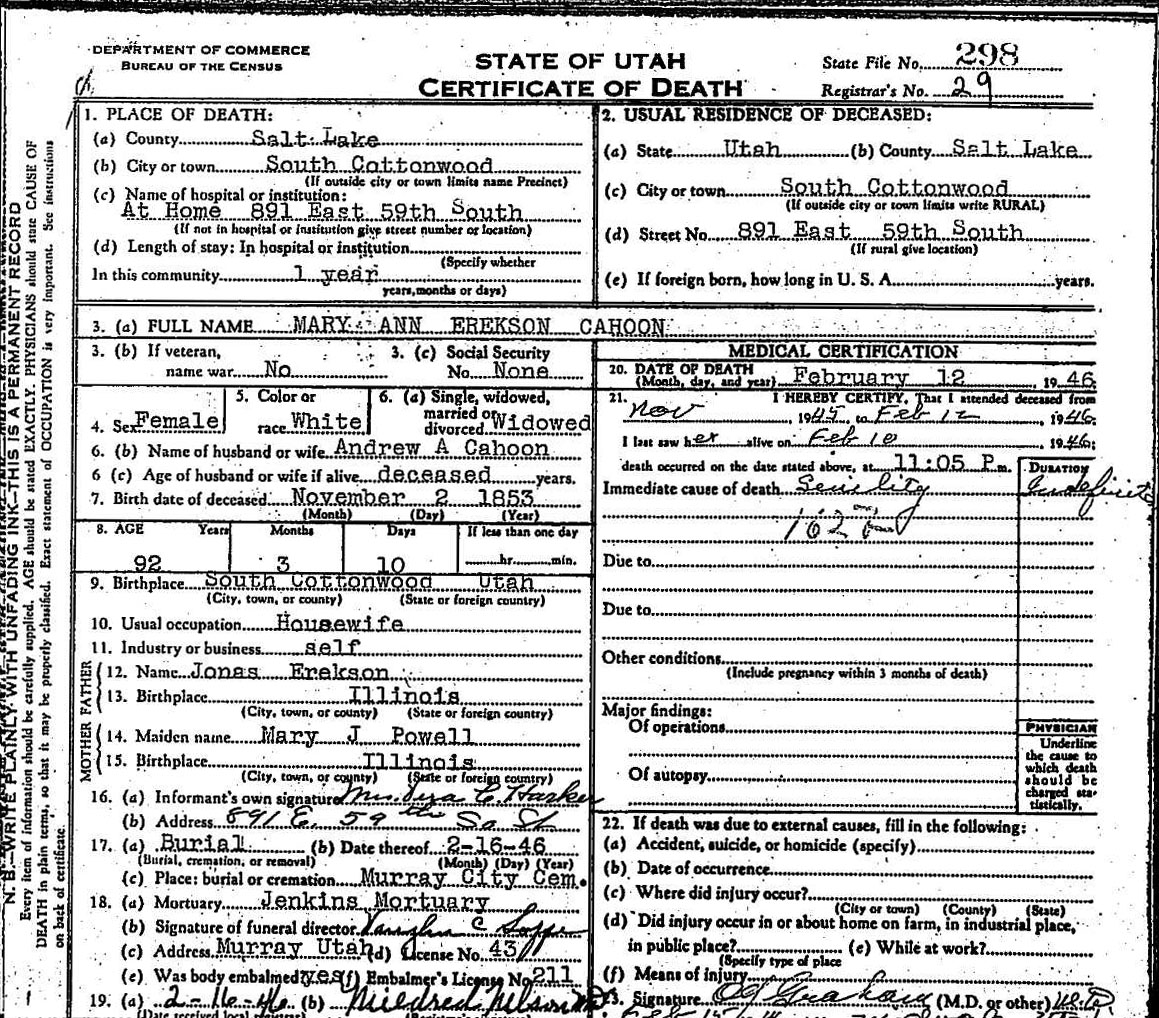 DEPARTMENT OF COMMERCE
BUREAU OF THE CENSUS
STATE OF UTAH
CERTIFICATE OF DEATH
State File No. 298
Registrar's No. 29
1. PLACE OF DEATH:
(a) County Salt Lake
(b) City or town South Cottonwood
(If outside city or town limits name Precinct)
(c) Name of hospital or institution:
At Home 891 East 59th South
(If not in hospital or institution give street number or location)
(d) Length of stay: In hospital or institution
(Specify whether
In this community 1 year
years, months or days)
2. USUAL RESIDENCE OF DECEASED:
(a) State Utah (b) County Salt Lake
(c) City or town South Cottonwood
(If outside city or town limits write RURAL)
(d) Street No. 891 East 59th South
(If rural give location)
(e) If foreign born, how long in U. S. A. years.
3. (a) FULL NAME MARY ANN EREKSON CAHOON
3. (b) If veteran, 3. (c) Social Security
name war No No. None
4. Sex Female 5. Color or race White 6. (a) Single, widowed, married or divorced Widowed
6. (b) Name of husband or wife Andrew A Cahoon
6 (c) Age of husband or wife if alive deceased years.
7. Birth date of deceased November 2 1853
(Month) (Day) (Year)
8. AGE Years Months Days If less than one day
92 3 10 hr. min.
9. Birthplace South Cottonwood Utah
(City, town, or county) (State or foreign country)
10. Usual occupation Housewife
11. Industry or business self
FATHER
12. Name Jonas Erekson
13. Birthplace Illinois
(City, town, or county) (State or foreign country)
MOTHER
14. Maiden name Mary J Powell
15. Birthplace Illinois
(City, town, or county) (State or foreign country)
16. (a) Informant's own signature Mrs. C. Harker
(b) Address 891 E. 59th So St
17. (a) Burial (b) Date thereof 2-16-46
(Burial, cremation, or removal) (Month) (Day) (Year)
(c) Place: burial or cremation Murray City Cem.
18. (a) Mortuary Jenkins Mortuary
(b) Signature of funeral director Vaughn C
(c) Address Murray Utah (d) License No. 43
(e) Was body embalmed yes (f) Embalmer's License No 211
19. (a) 2-16-46 (b) Mildred Nelson
(Date received local
MEDICAL CERTIFICATION
20. DATE OF DEATH
(Month, day, and year) February 12, 1946
21. I HEREBY CERTIFY, That I attended deceased from
Nov 1945, to Feb 12, 1946
I last saw her alive on Feb 10 1946;
death occurred on the date stated above, at 11:05 P.m. DURATION
Immediate cause of death Senility Indefinite
162
Due to
Due to
Other conditions
(Include pregnancy within 3 months of death)
Major findings:
Of operations
Of autopsy
PHYSICIAN
Underline
the cause to
which death
should be
charged sta-
tistically.
22. If death was due to external causes, fill in the following:
(a) Accident, suicide, or homicide (specify)
(b) Date of occurrence
(c) Where did injury occur?
(City or town) (County) (State)
(d) Did injury occur in or about home on farm, in industrial place,
in public place? (e) While at work?
(Specify type of place
(f) Means of injury
23. Signature Graham (M.D. or other) M.D.
N. B.—WRITE PLAINLY WITH UNFADING INK—THIS IS A PERMANENT RECORD
Every item of information should be carefully supplied. AGE should be stated EXACTLY. PHYSICIANS should state CAUSE OF
DEATH in plain terms, so that it may be properly classified. Exact statement of OCCUPATION is very important. See instructions
on back of certificate.